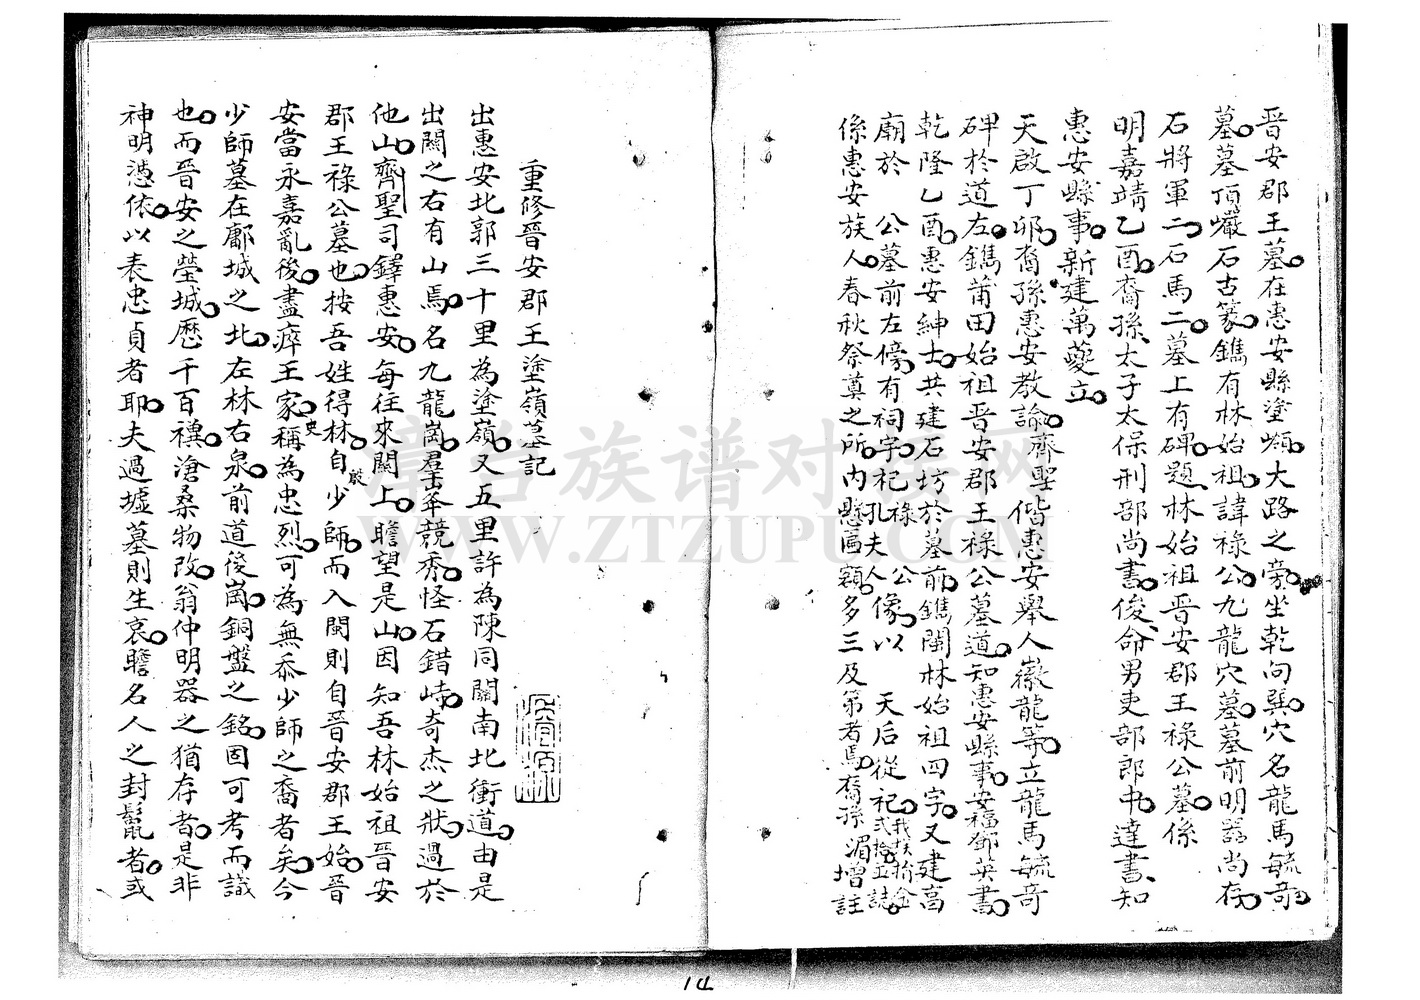 晉安郡王墓在惠安縣塗嶺大路之旁坐乾向巽穴名龍馬毓奇
墓墓頂巖石古篆鐫有林始祖諱祿公九龍穴墓墓前明器尚存
石將軍二石馬二墓上有碑題林始祖晉安郡王祿公墓係
明嘉靖乙酉裔孫太子太保刑部尚書俊命男吏部郎中達書知
惠安縣事新建萬夔立
天啟丁卯裔孫惠安教諭齊聖偕惠安舉人徽龍等立龍馬毓奇
碑於道左鐫莆田始祖晉安郡王祿公墓道知惠安縣事安福鄧英書
乾隆乙酉惠安紳士共建石坊於墓前鐫閩林始祖四字又建高
廟於 公墓前左傍有祠字祀祿公像以 天后從祀我族捨金式拾五誌
孔夫人
係惠安族人春秋祭奠之所內懸匾額多三及第者焉裔孫湄增註
重修晉安郡王塗嶺墓記
出惠安北郭三十里為塗嶺又五里許為陳同關南北衝道由是
出關之右有山焉名九龍崗群峯競秀怪石錯峙奇杰之狀過於
他山齊聖司鐸惠安每往來關上瞻望是山因知吾林始祖晉安
郡王祿公墓也按吾姓得林自殷少師而入閩則自晉安郡王始晉
安當永嘉亂後盡瘁王家史稱為忠烈可為無忝少師之裔者矣今
少師墓在鄘城之北左林右泉前道後崗銅盤之銘固可考而識
也而晉安之瑩城歷千百禩滄桑物改翁仲明器之猶存者是非
神明憑依以表忠貞者耶夫過墟墓則生哀瞻名人之封鬣者或
漳台族谱对接网
WWW.ZTZUPU.COM
14